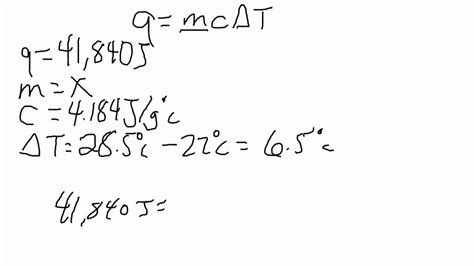 q = mcΔT
q = 41,840J
m = X
C = 4.184J/g°c
ΔT = 28.5°c - 22°c = 6.5°c
41,840J =